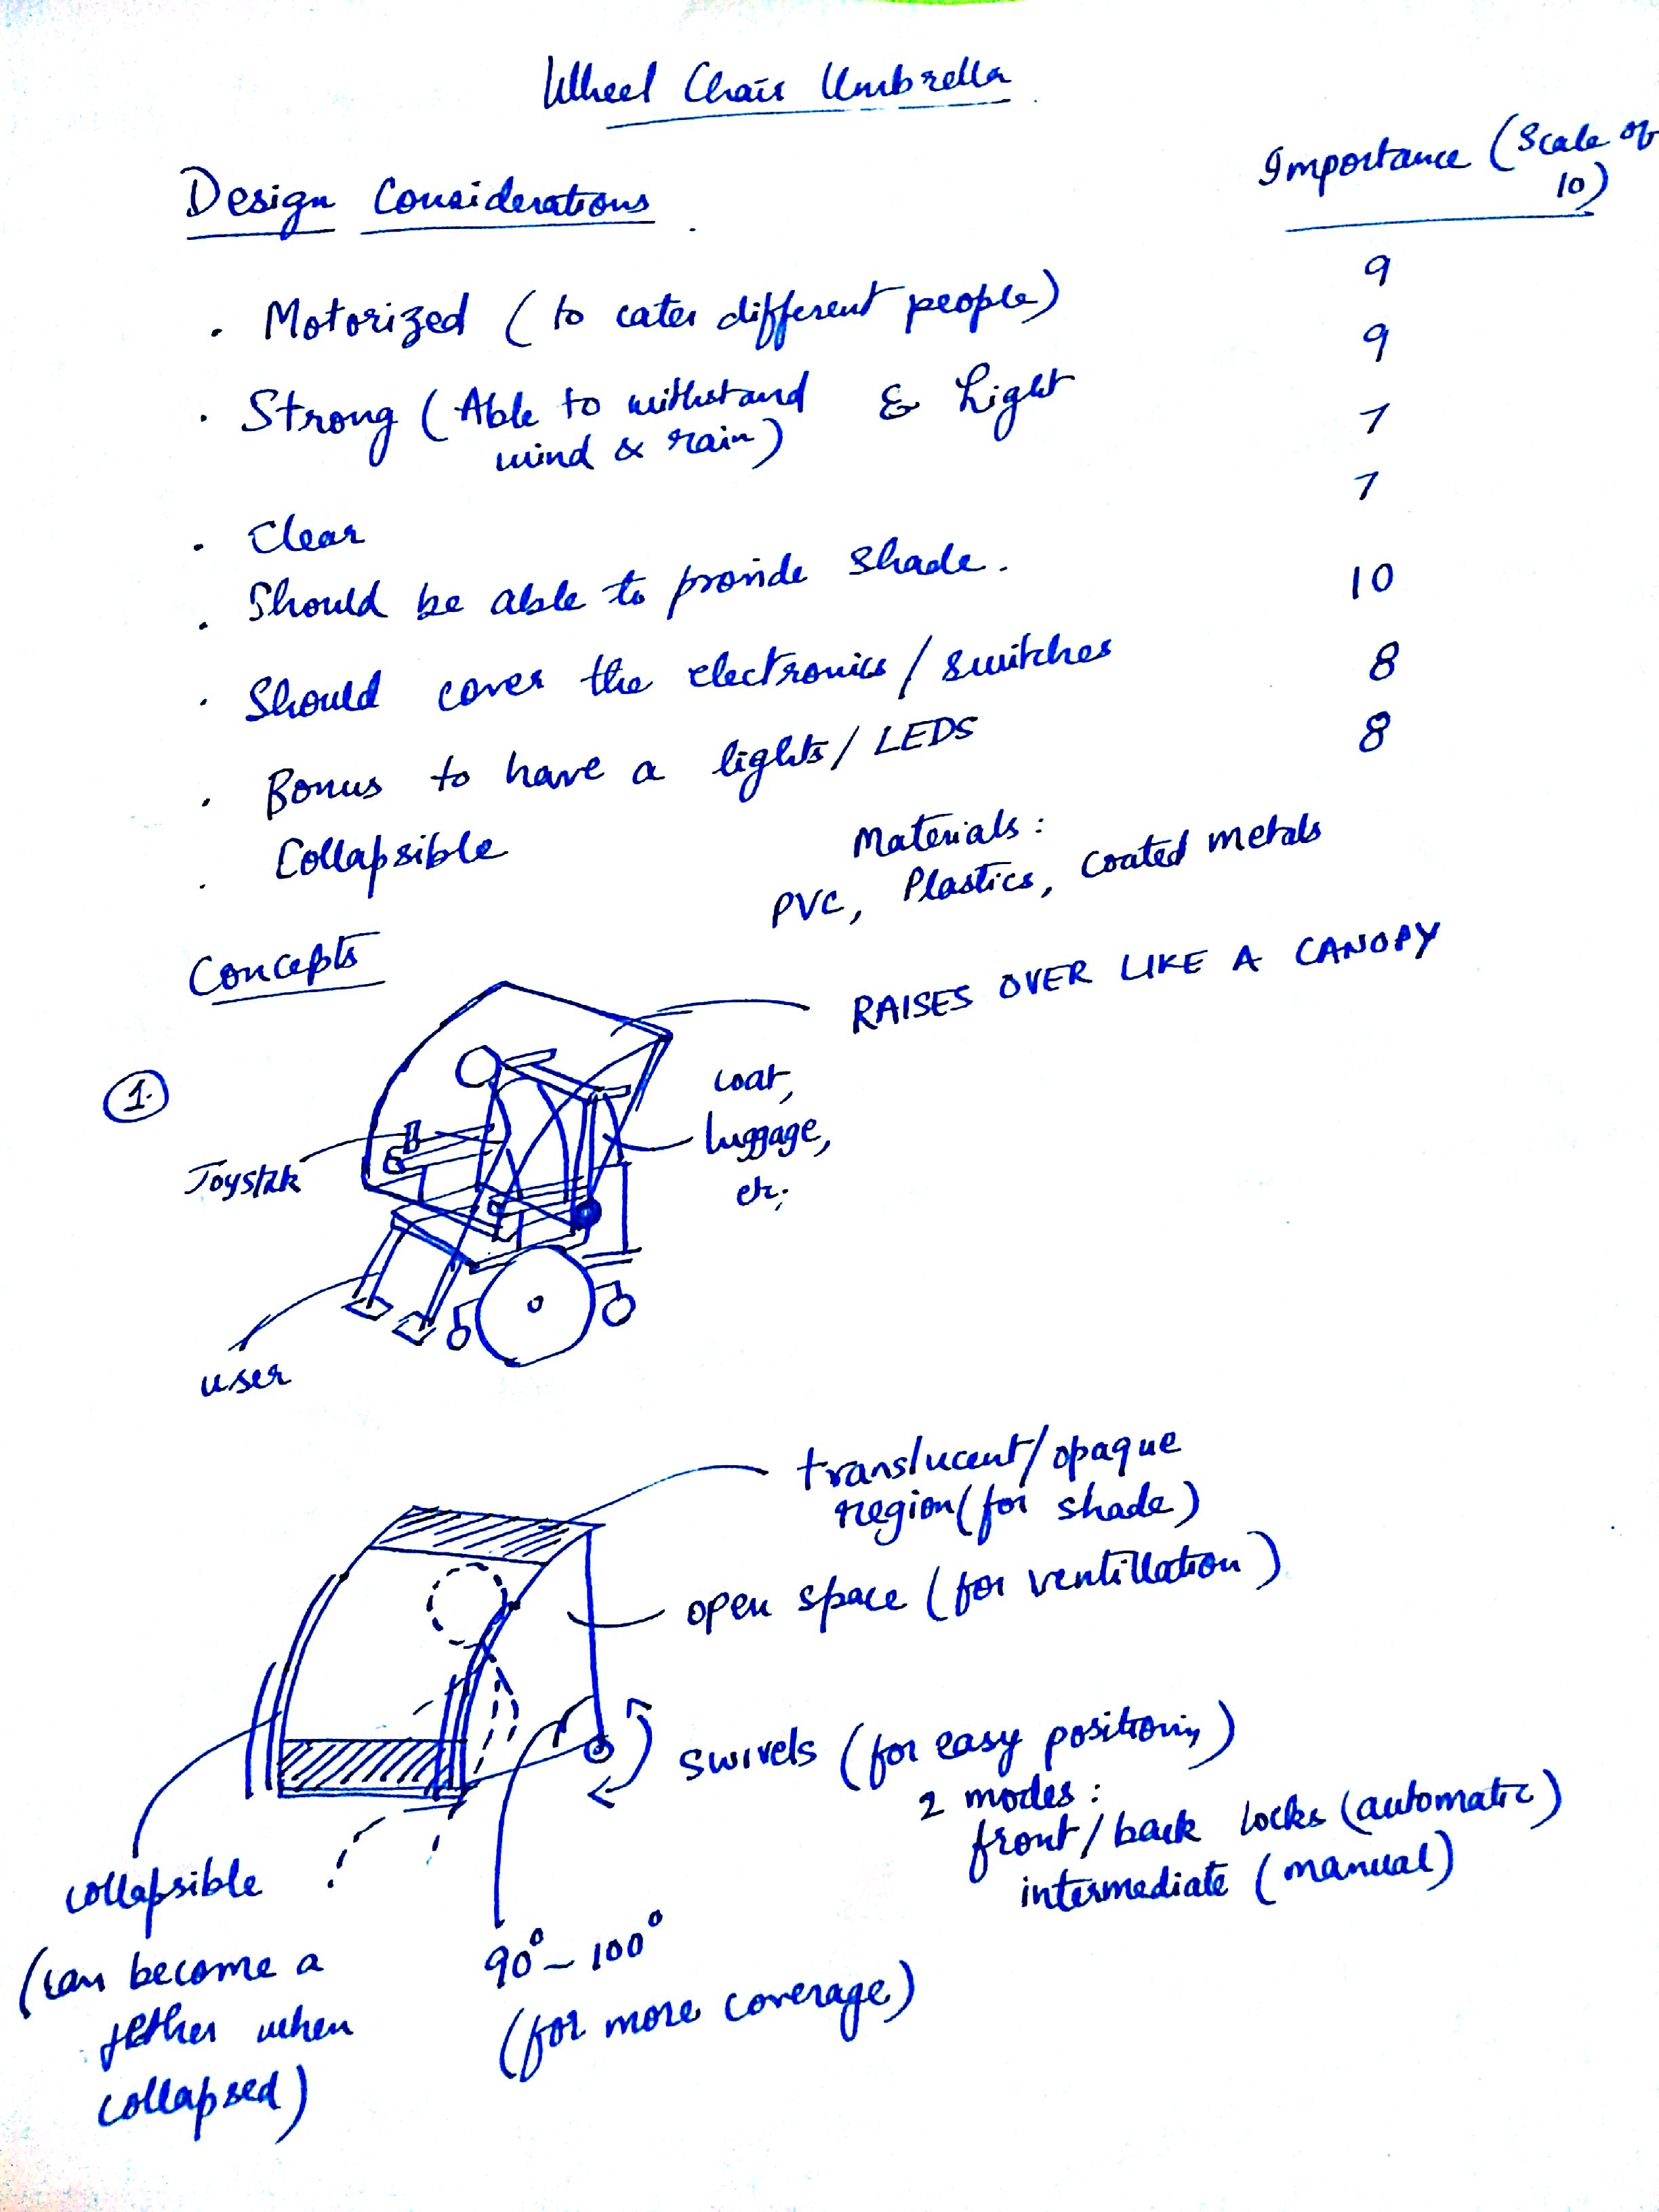 Wheel Chair Umbrella
Design Considerations
Importance (Scale of
10)
. Motorized (to cater different people)
9
. Strong (Able to withstand & Light
wind & rain)
9
. Clear
7
. Should be able to provide shade.
7
. Should cover the electronics / switches
10
. Bonus to have a lights / LEDS
8
. Collapsible
8
Materials:
PVC, Plastics, coated metals
Concepts
RAISES OVER LIKE A CANOPY
1.
coat,
luggage,
etc;
Joystick
user
translucent/opaque
region (for shade)
open space (for ventillation)
swivels (for easy positioning)
2 modes:
front/back locks (automatic)
intermediate (manual)
collapsible
(can become a
when
collapsed)
90° - 100°
(for more coverage)